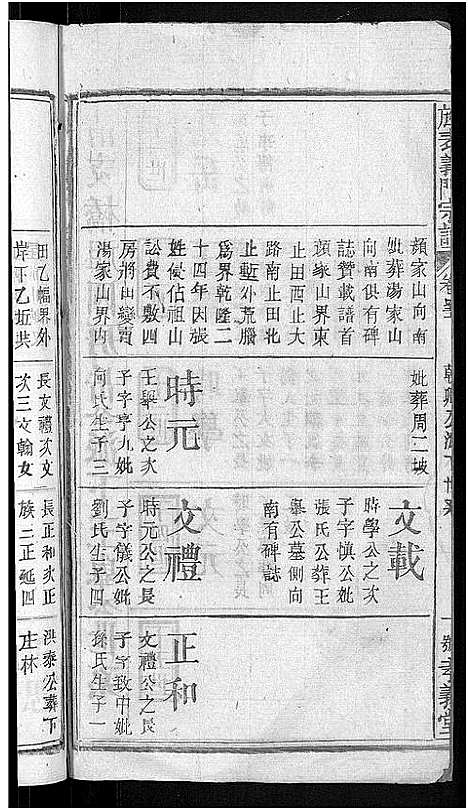 旌表義門宗譜
顏家山向南
妣葬湯家山
向南俱有碑
誌贊載譜首
顏家山界東
止田西止大
路南止田北
止塹外荒腦
為界乾隆二
十四年因張
姓侵佔祖山
訟費不敷四
房將田變賣
湯家山界內
妣葬周二坡
時元
王舉公之次
子字亨九妣
向氏生子三
文載
時學公之次
子字慎公妣
張氏公葬王
舉公墓側向
南有碑誌
文禮
時元公之長
子字儀公妣
劉氏生子四
正和
文禮公之長
子字致中妣
孫氏生子一
孝義堂
田乙幅界外
岸下乙坵共
長文禮次文
次三文翰女
長正和次正
族三正延四
洪泰公葬下
庄林